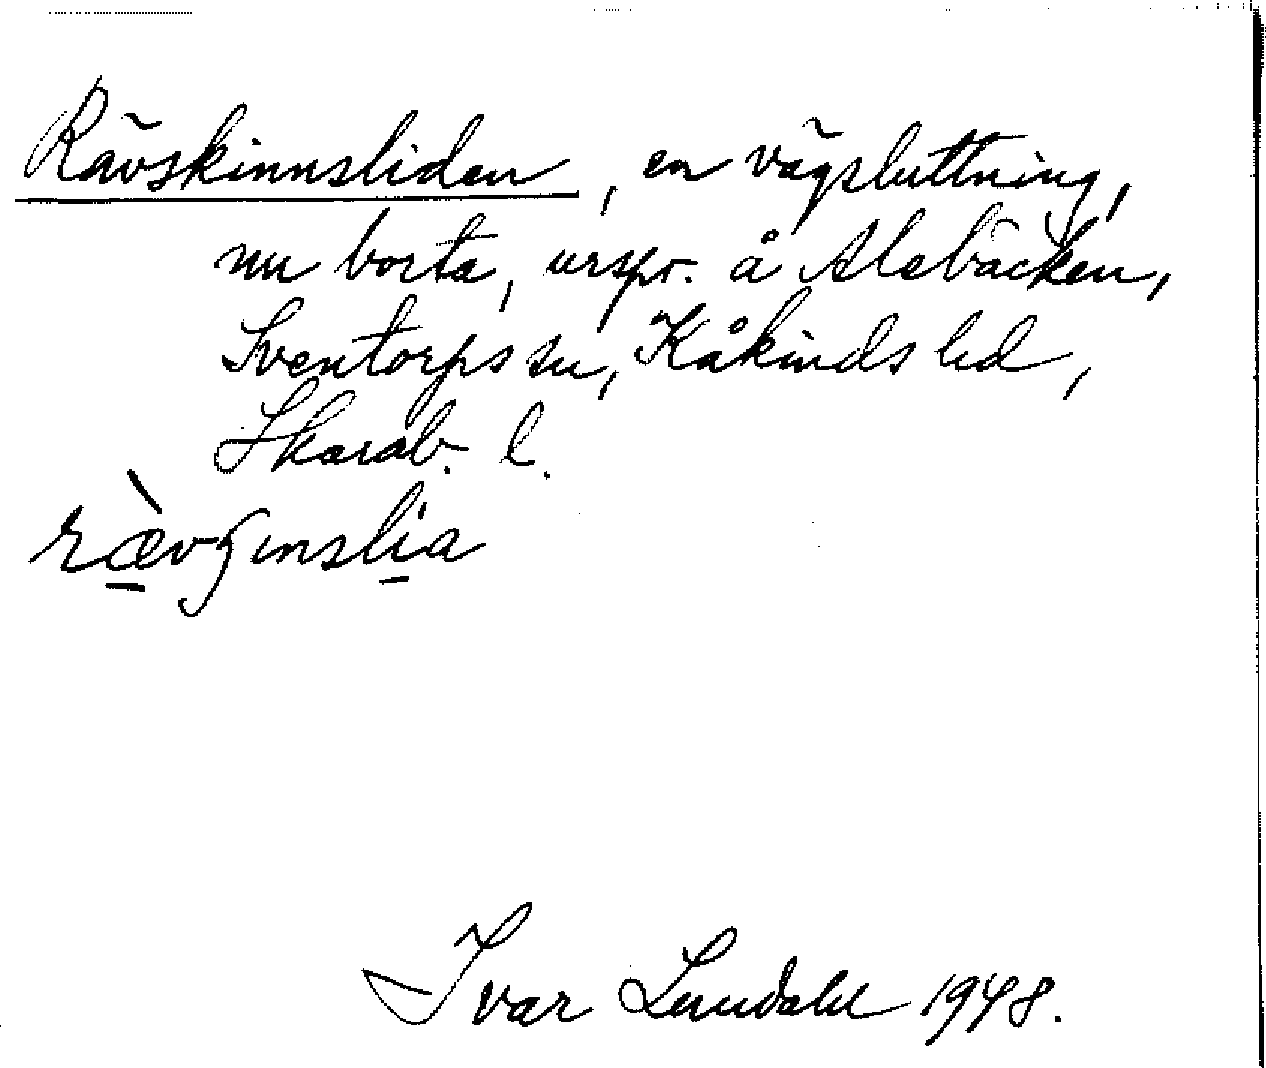 Rävskinnsliden, en vägsluttning,
nu borta, urspr. å Alebäcken,
Sventorps sn, Kåkinds hd,
Skarab. l.
ræ̀vʃinslia
Ivar Lundahl 1948.